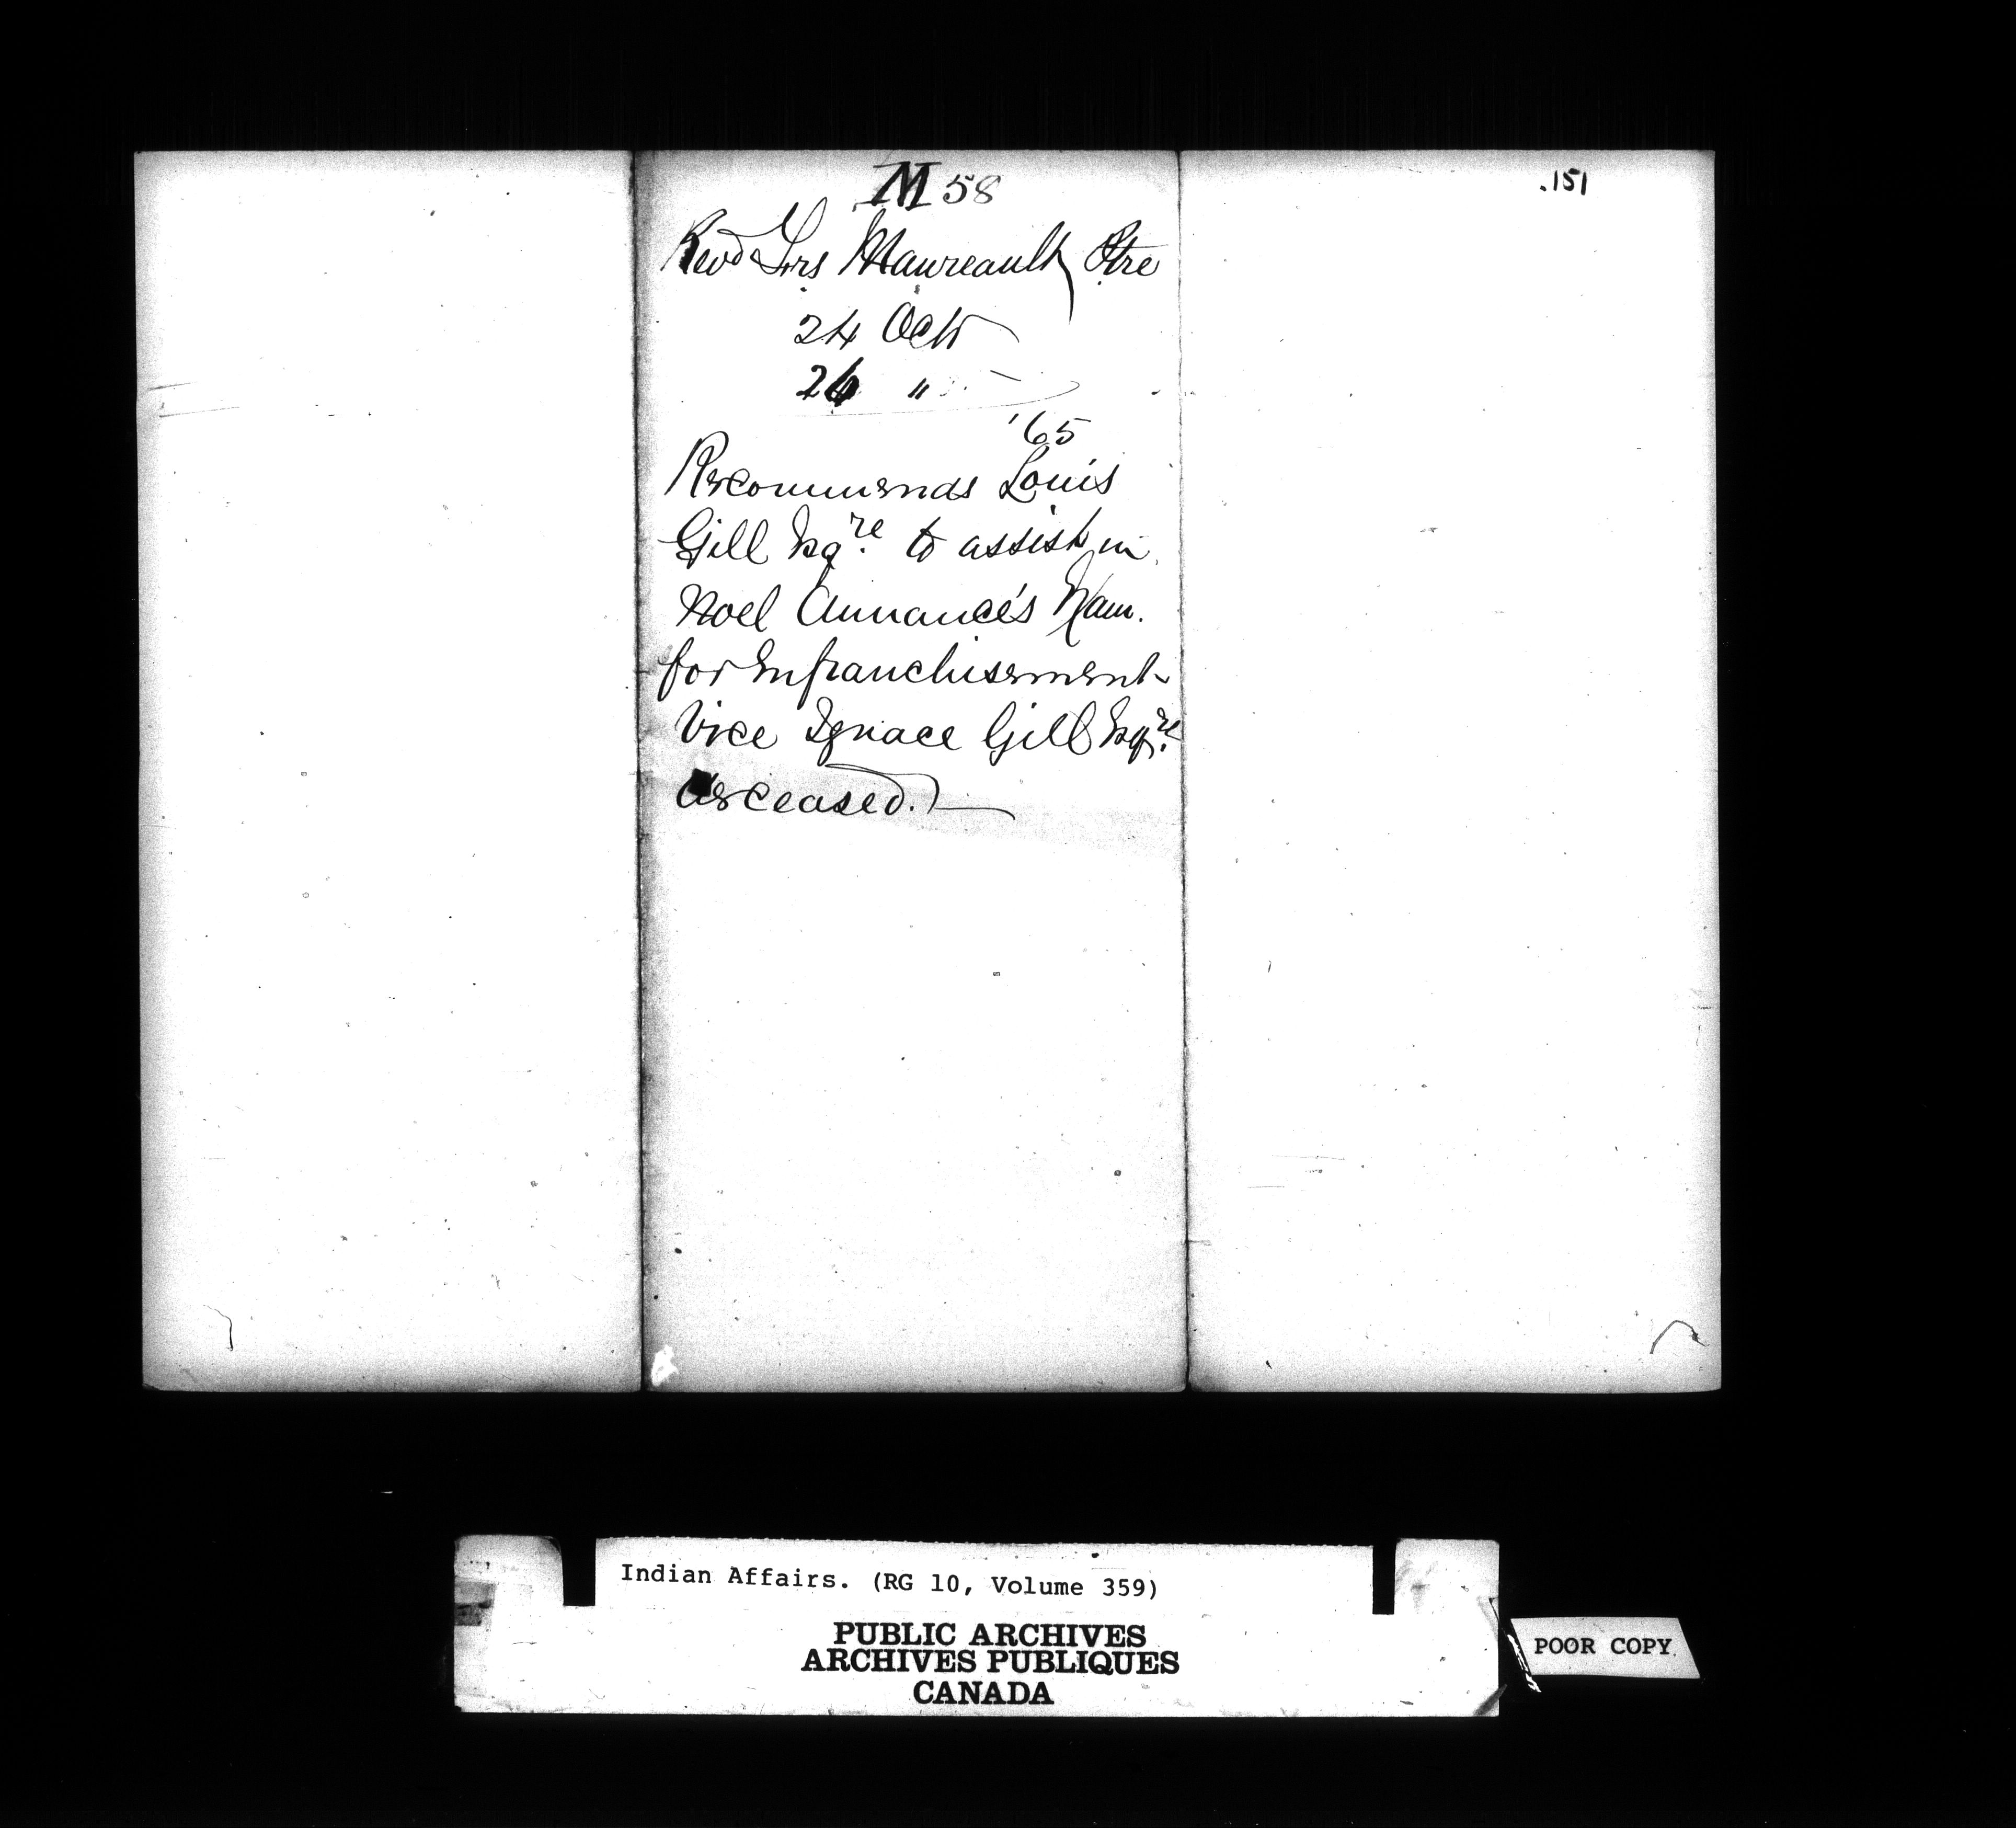 M 58
.151
Revd Jos Maureault Ptre
24 Octr
26 "
'65
Recommends Louis
Gill Esqre. to assist in
Noel Annance's Exam.
for Enfranchisement
Vice Ignace Gill Esqre.
deceased.
Indian Affairs. (RG 10, Volume 359)
PUBLIC ARCHIVES
ARCHIVES PUBLIQUES
CANADA
POOR COPY